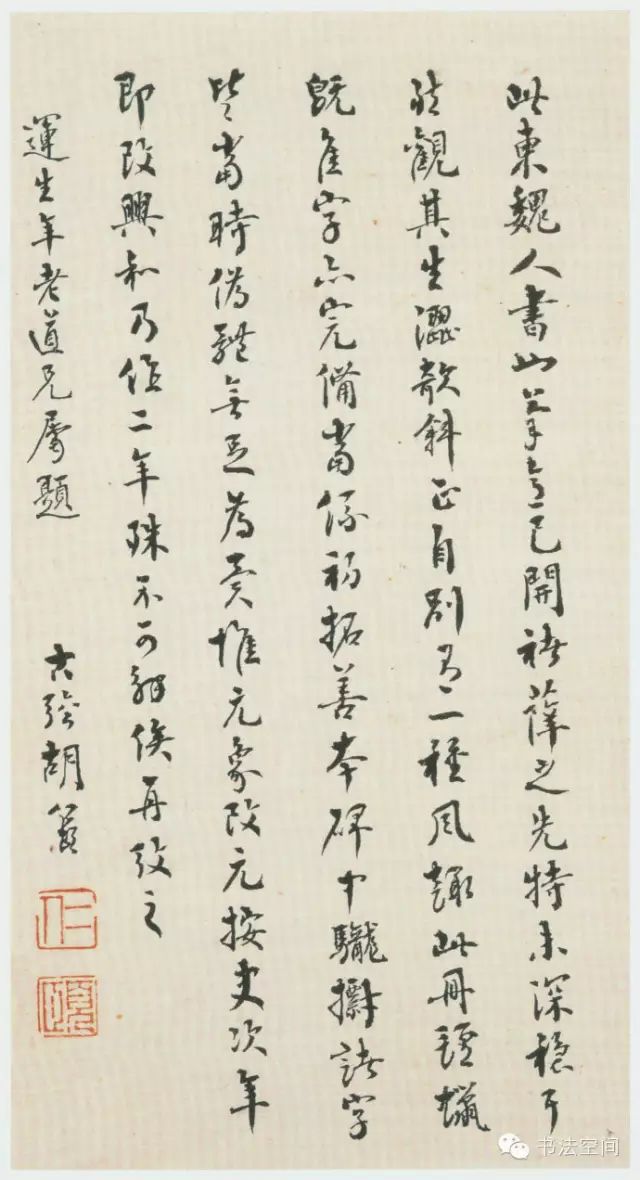 此東魏人書也筆意已開褚薛之先特未深穩耳
然觀其生澀欹斜正自別有一種風趣此冊氊蠟
既佳字亦完備當係初拓善本碑中驪諸字
皆當時偽體無足為異惟元象改元按史次年
即改興和乃作二年殊不可解俟再攷之
運生年老道兄屬題
古歙胡
书法空间